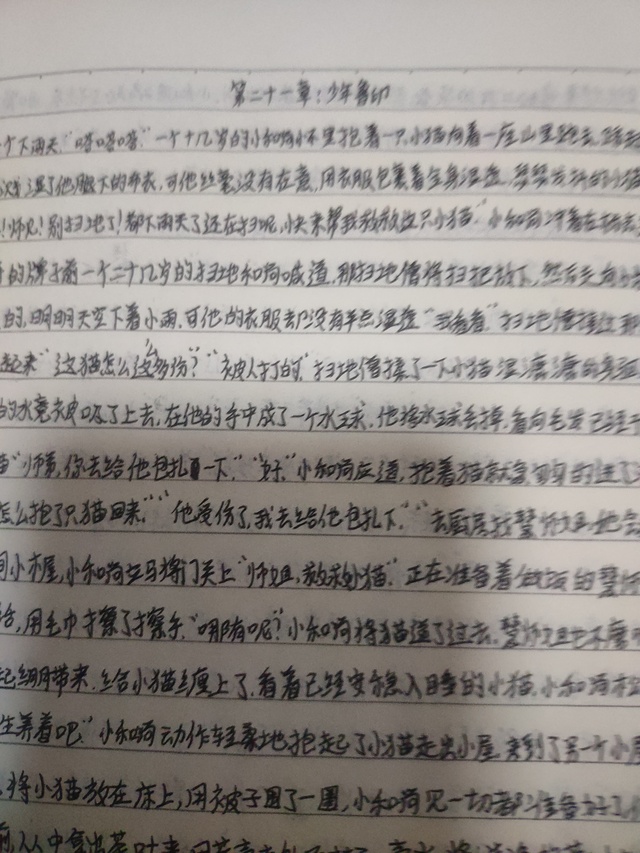 第二十一章:少年鲁印
个下雨天,"嗒嗒嗒"一个十几岁的小和尚怀里抱着一只小猫向着一座山里跑去,
湿了他脚下的布衣,可他丝毫没有在意,用衣服包裹着全身湿
!师兄!别扫地了!都下雨天了还在扫呢,快来帮我救救这只小猫"小和尚冲着
的牌子前一个二十几岁的扫地和尚喊道,那扫地僧将扫把放下,然后走向
的,明明天空下着小雨,可他的衣服却没有半点湿"我看看"扫地僧接过那
起来"这猫怎么这么多伤?""被人打的"扫地僧摸了一下小猫湿漉漉的
的水竟被吸了上去,在他的手中成了一个水球,他将水球丢掉,看向毛发已经干
"师弟,你去给他包扎一下,""好"小和尚应道,抱着猫就匆匆的进了
怎么抱了只猫回来,""他受伤了,我去给他包扎下,""去厨房找慧师姐,她会
间小木屋,小和尚立马将门关上"师姐,救救小猫"正在准备着做饭的慧师
用毛巾擦了擦手,"哪有呢?"小和尚将猫递了过去,慧师姐也不磨
起绷带来,给小猫缠上了,看着已经安稳入睡的小猫,小和尚
生养着吧"小和尚动作轻柔地抱起了小猫走出小屋,来到了另一个小
将小猫放在床上,用被子围了一圈,小和尚见一切都准备好了